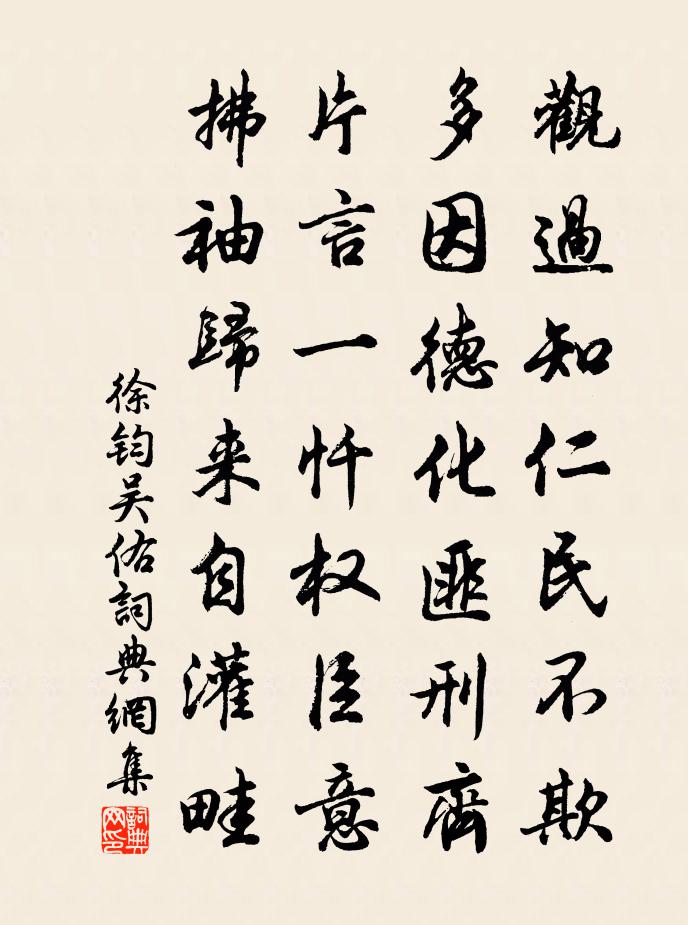 觀過知仁民不欺
多因德化匪刑齊
片言一忤权臣意
拂袖歸来自灌畦
徐鈞吴佑詞典網集
詞典网印